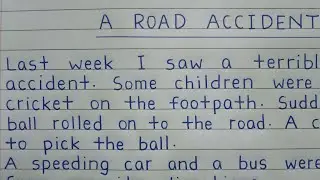 A ROAD ACCIDENT
Last week I saw a terribl
accident. Some children were
cricket on the footpath. Sudd
ball rolled on to the road. A c
to pick the ball.
A speeding car and a bus were